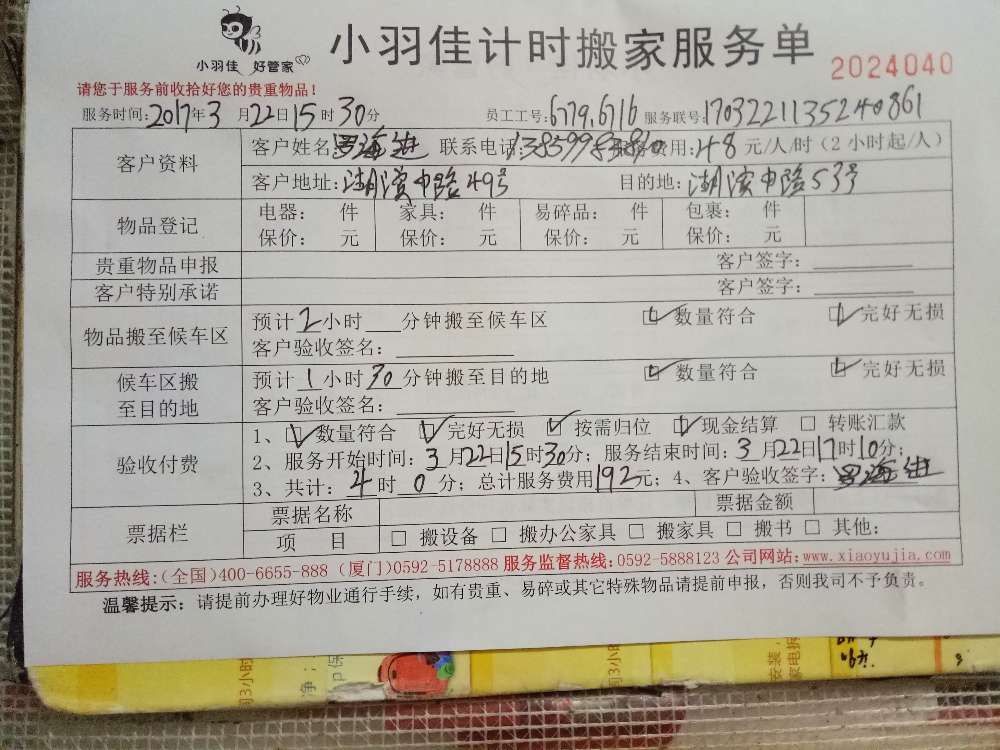 小羽佳 好管家
小羽佳计时搬家服务单
2024040
请您于服务前收拾好您的贵重物品！
服务时间：2017年3月22日15时30分 员工工号：6719,6716 服务联号：1703221135240861
客户资料
客户姓名 罗海进 联系电话： 费用：48元/人/时（2小时起/人）
客户地址：湖滨中路49号 目的地：湖滨中路53号
物品登记
电器： 件 家具： 件 易碎品： 件 包裹： 件
保价： 元 保价： 元 保价： 元 保价： 元
贵重物品申报 客户签字：
客户特别承诺 客户签字：
物品搬至候车区
预计2小时 分钟搬至候车区 ☑数量符合 ☑完好无损
客户验收签名：
候车区搬至目的地
预计1小时30分钟搬至目的地 ☑数量符合 ☑完好无损
客户验收签名：
验收付费
1、☑数量符合 ☑完好无损 ☑按需归位 ☑现金结算 □转账汇款
2、服务开始时间：3月22日15时30分；服务结束时间：3月22日17时10分；
3、共计：4时0分；总计服务费用192元；4、客户验收签字：罗海进
票据栏
票据名称 票据金额
项 目 □搬设备 □搬办公家具 □搬家具 □搬书 □其他：
服务热线：（全国）400-6655-888（厦门）0592-5178888 服务监督热线：0592-5888123 公司网站：www.xiaoyujia.com
温馨提示：请提前办理好物业通行手续，如有贵重、易碎或其它特殊物品请提前申报，否则我司不予负责。